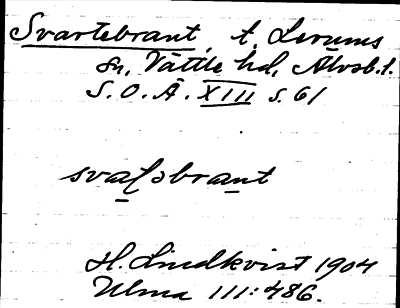 Svartebrant, t. Lerums
sn, Vättle hd, Älvsb.l.
S.O.Ä. XIII s. 61
svaʈəbrant
H. Lindkvist 1904
Ulma 111:486.